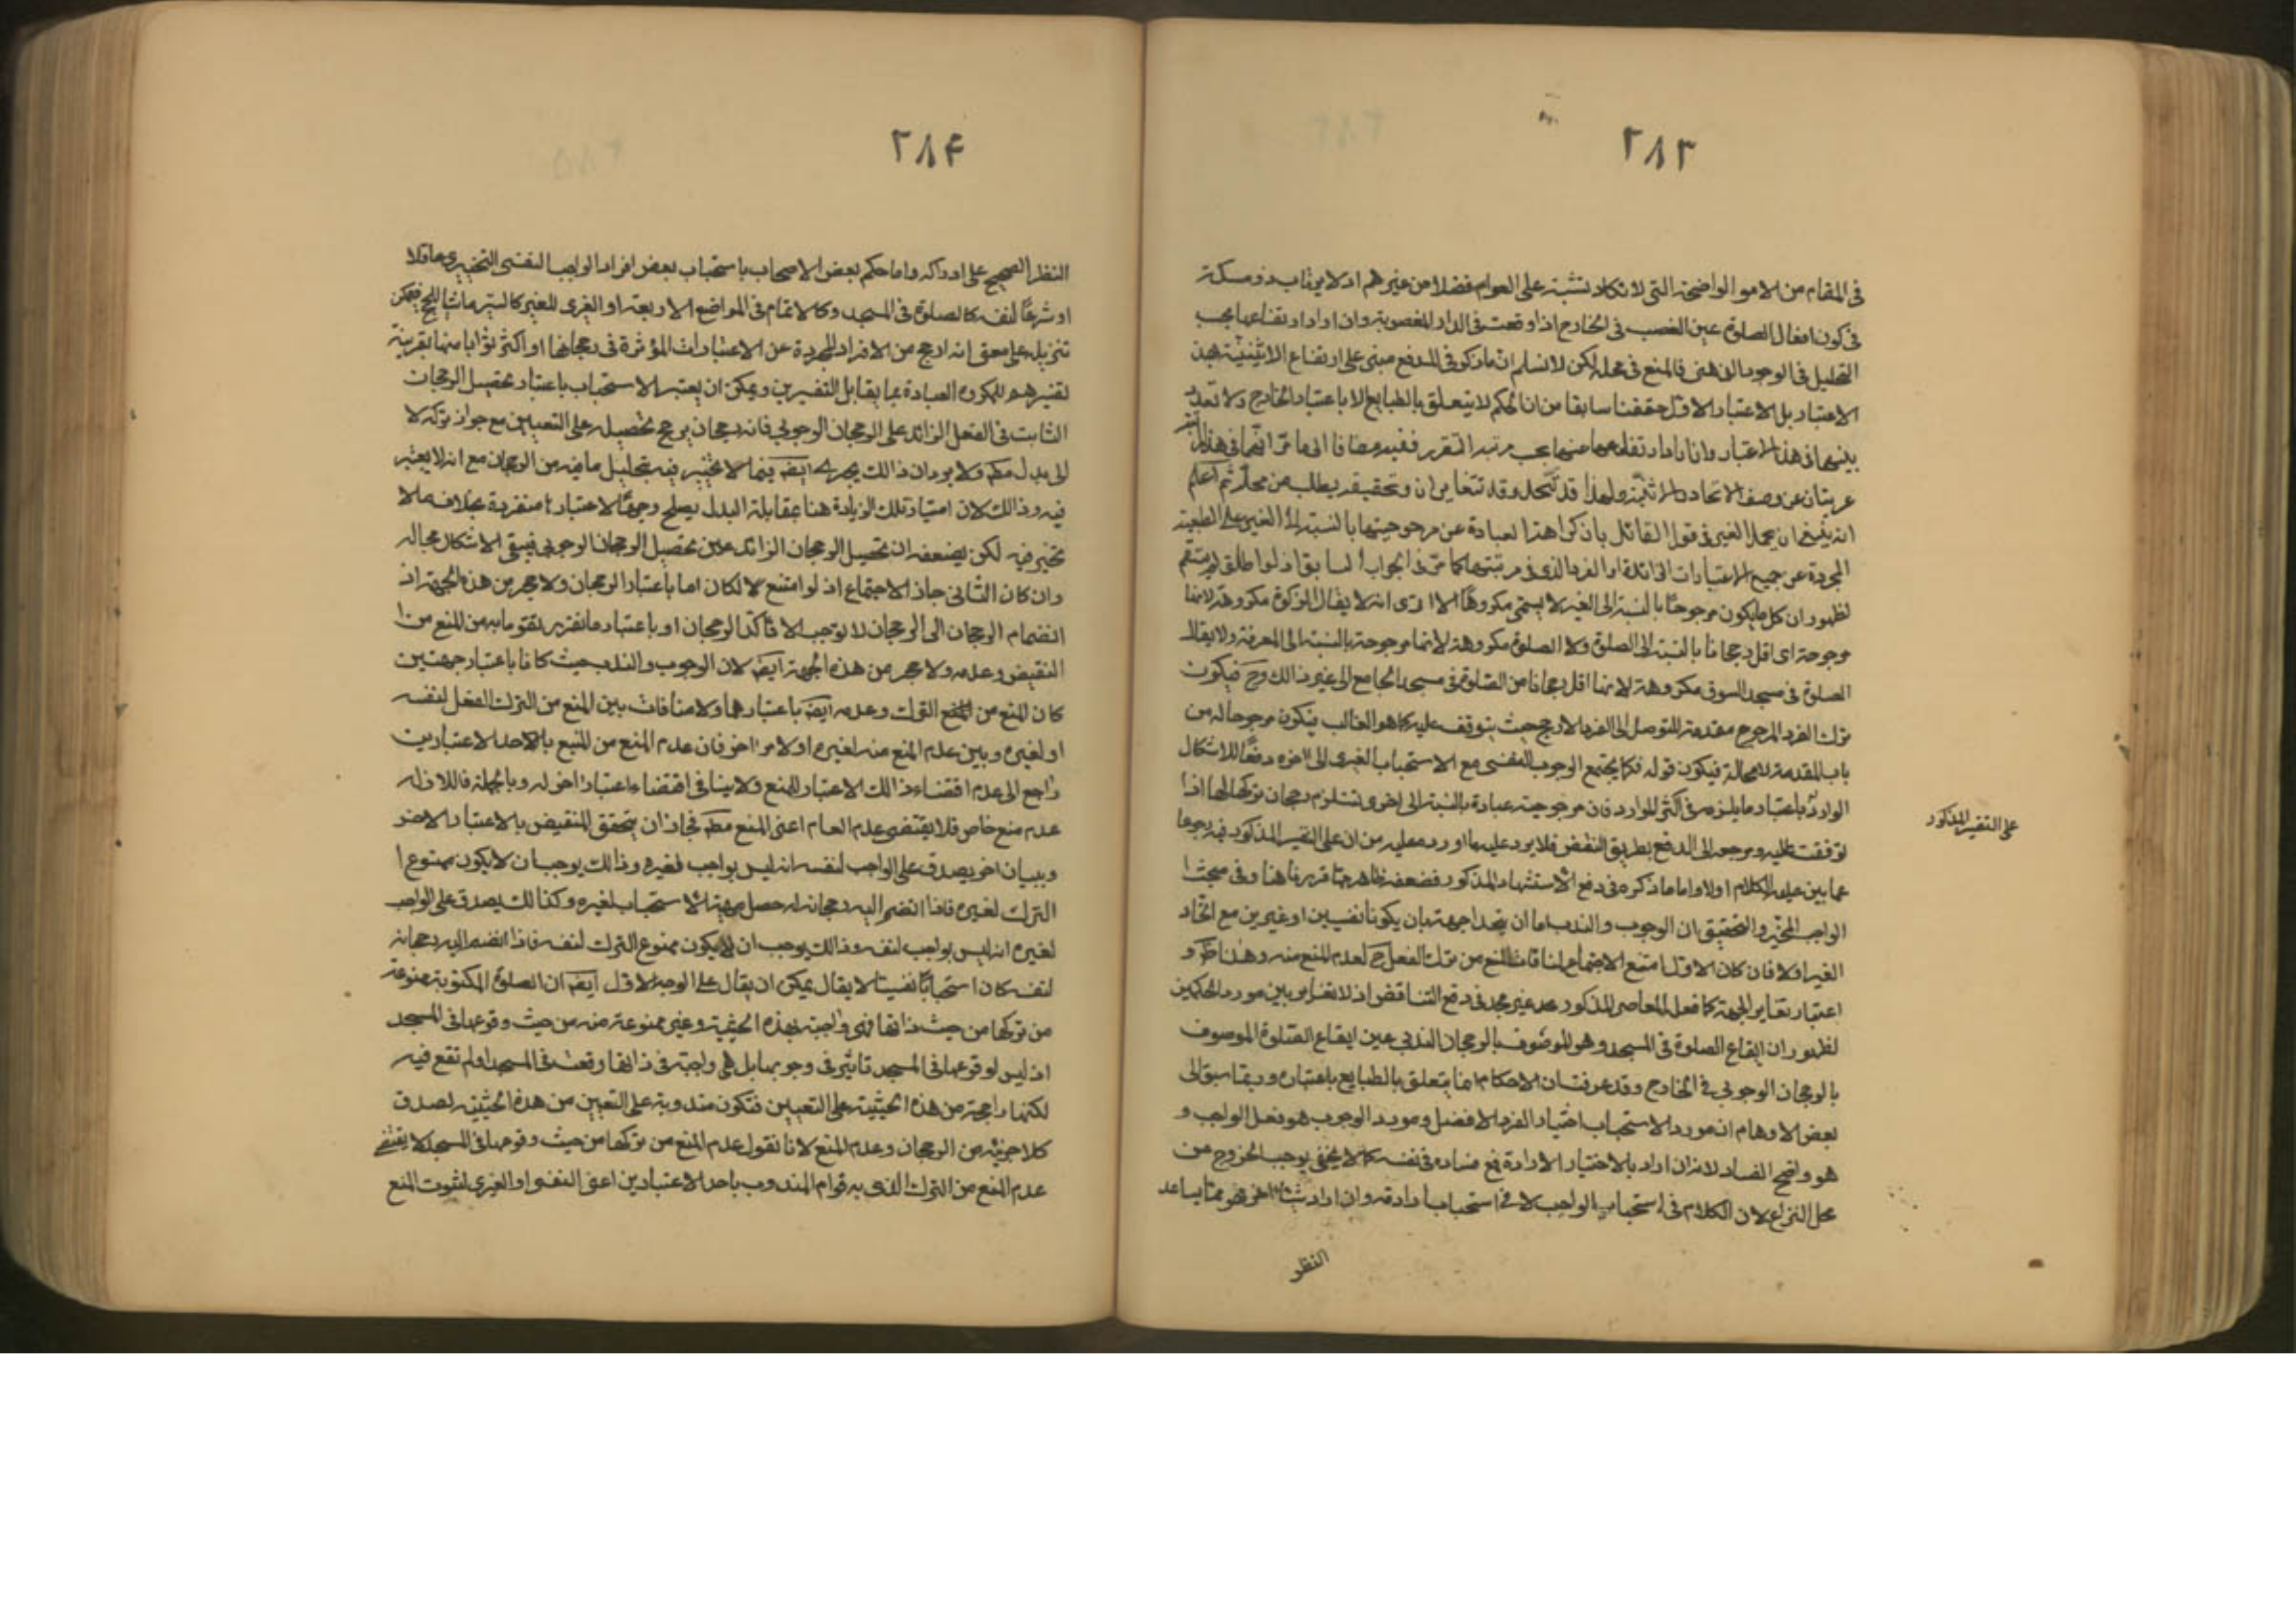 ٢٨٣
فى المقام من الامور الواضحة التى لا تكاد تشتبه على العوام فضلا من غيرهم اذ لا يرتاب ذو مسكة
فى كون افعال الصلوة عين الغصب فى الخارج اذا وقعت فى الدار المغصوبة وان اراد ارتفاعها بحسب
التحليل فى الوجود الذهنى فالمنع فى محله لكن لا نسلم ان ما ذكر فى الدفع مبنى على ارتفاع الاثنينية بهذا
الاعتبار بل الاعتبار الاول حققنا سابقا من ان الحكم لا يتعلق بالطبايع الا باعتبار الخارج ولا تعدد
بينهما فى هذا الاعتبار وان اراد ارتفاعهما عنهما بحسب مرتبة التقرر ففيه مضافا الى ما مر انهما فى هذا
عريتان عن وصف الاتحاد والاثنينية ولهذا قد تتحد وقد تتغايران وتحقيقه يطلب من محله ثم اعلم
انه ينبغى ان يحمل الغير فى قول القائل بان كراهة العبادة عن مرجوحيتها بالنسبة الى الغير على الطبيعة
المجردة عن جميع الاعتبارات الزائدة او الفرد الذى فى مرتبتها كما مر فى الجواب السابق اذ لو اطلق لم يستقم
لظهور ان كل ما يكون مرجوحا بالنسبة الى الغير لا يسمى مكروها الا ترى انه لا يقال الزكوة مكروهة لانها
مرجوحة اى اقل رجحانا بالنسبة الى الصلوة ولا الصلوة مكروهة لانها مرجوحة بالنسبة الى المعرفة ولا يقال
الصلوة فى مسجد السوق مكروهة لانها اقل رجحانا من الصلوة فى مسجد الجامع الى غير ذالك وح فيكون
ترك الفرد المرجوح مقدمة للتوصل الى الفرد الارجح حيث يتوقف عليه كما هو الغالب فيكون مرجوحا له من
باب المقدمة لا محالة فيكون قوله فكما يجتمع الوجوب النفسى مع الاستحباب الغيرى الى اخره دفعا للاشكال
الوارد باعتبار ما يلزمه فى اكثر الموارد فان مرجوحية عبادة بالنسبة الى اخرى تستلزم رجحان تركها لها اذا
توقفت عليه ومرجعه الى الدفع بطريق النقض فلا يرد عليه ما اورده عليه من ان على التفسير المذكور فيه رجوعا
على التفسير المذكور
عما بين عليه الكلام اولا واما ما ذكره فى دفع الاستشهاد المذكور فضعفه ظاهر مما قررناه هنا وفى مبحث
الواجب المخير والتحقيق ان الوجوب والندب اما ان يتحدا جهة بان يكونا نفسيين او غيريين مع اتحاد
الغير اولا فان كان الاول امتنع الاجتماع لمنافات المنع من ترك الفعل ح لعدم المنع منه وهذا ظ و
اعتبار تغاير الجهة كما فعل المعاصر المذكور غير مجد فى دفع التناقض اذ لا تغاير بين مورد الحكمين
لظهور ان ايقاع الصلوة فى المسجد وهو الموصوف بالرجحان الندبى عين ايقاع الصلوة الموصوف
بالرجحان الوجوبى فى الخارج وقد عرفت ان الاحكام انما يتعلق بالطبايع باعتباره وربما سبق الى
بعض الاوهام ان مورد الاستحباب اختيار الفرد الافضل ومورد الوجوب هو نفس الواجب و
هو واضح الفساد لانه ان اراد بالاختيار الارادة فمع فساده فى نفسه كما لا يخفى يوجب الخروج من
محل النزاع لان الكلام فى استحباب الواجب لا فى استحباب ارادته وان اراد شيئا اخر فهو مما يساعد
النظر
٢٨۴
النظر الصحيح على ادراكه واما حكم بعض الاصحاب باستحباب بعض افراد الواجب النفسى التخييرى عقلا
او شرعا لنفسه كالصلوة فى المسجد وكالاتمام فى المواضع الاربعة او الغيرى للغير كالسير ماشيا للحج فيمكن
تنزيله على معنى انه ارجح من الافراد المجردة عن الاعتبارات المؤثرة فى رجحانها او اكثر ثوابا منها بقرينة
تفسيرهم للمكروه العبادة بما يقابل التفسيرين ويمكن ان يعتبر الاستحباب باعتبار تحصيل الرجحان
الثابت فى الفعل الزائد على الرجحان الوجوبى فانه رجحان يرجح تحصيله على التعيين مع جواز تركه لا
الى بدل مط ولا يرد ان ذالك يجرى ايض فيما لا تخيير فيه بتحليل ما فيه من الرجحان مع انه لا يعتبر
فيه وذالك لان امتياز تلك الزيادة هنا بمقابلة البدل يصلح وجها لاعتبارها منفردة بخلاف ما لا
تخيير فيه لكن يضعفه ان تحصيل الرجحان الزائد عين تحصيل الرجحان الوجوبى فيبقى الاشكال بحاله
وان كان الثانى جاز الاجتماع اذ لو امتنع لكان اما باعتبار الرجحان ولا حجر من هذه الجهة اذ
انضمام الرجحان الى الرجحان لا يوجب الا تأكد الرجحان او باعتبار ما تقررر تقومابه من المنع من
النقيض وعدمه ولا حجر من هذه الجهة ايض لان الوجوب والندب حيث كانا باعتبار جهتين
كان المنع من الترك وعدمه ايض باعتبارهما ولا منافات بين المنع من الترك الفعل لنفسه
او لغيره وبين عدم المنع منه لغيره او لامر اخر فان عدم المنع من المنع باحد الاعتبارين
راجع الى عدم اقتضاء ذالك الاعتبار للمنع ولا ينافى اقتضاء اعتبار اخر له وبالجملة فاللازم له
عدم منع خاص فلا يقتضى عدم العام اعنى المنع مط فجاز ان يتحقق النقيض بالاعتبار الاخر
وببيان اخر يصدق على الواجب لنفسه انه ليس بواجب لغيره وذالك يوجب ان لا يكون ممنوع
الترك لغيره فاذا انضم اليه رجحانه له حصل جهة الاستحباب لغيره وكذالك يصدق على الواجب
لغيره انه ليس بواجب لنفسه وذالك يوجب ان لا يكون ممنوع الترك لنفسه فاذا انضم اليه رجحانه
لنفسه كان استحبابا نفسيا لا يقال يمكن ان يقال على الوجه الاول ايض ان الصلوة المكتوبة ممنوعة
من تركها من حيث ذاتها فهى واجبة بهذه الحيثية وغير ممنوعة منه من حيث وقوعها فى المسجد
اذ ليس لوقوعها فى المسجد تاثير فى وجوبها بل هى واجبة فى ذاتها وقعت فى المسجد او لم تقع فيه
لكنها راجحة من هذه الحيثية على التعيين فتكون مندوبة على التعيين من هذه الحيثية لصدق
كلا جزئيه من الرجحان وعدم المنع لانا نقول عدم المنع من تركها من حيث وقوعها فى المسجد لا يقتضى
عدم المنع من الترك الذى به قوام المندوب باحد الاعتبارين اعنى النفسى او الغيرى لثبوت المنع